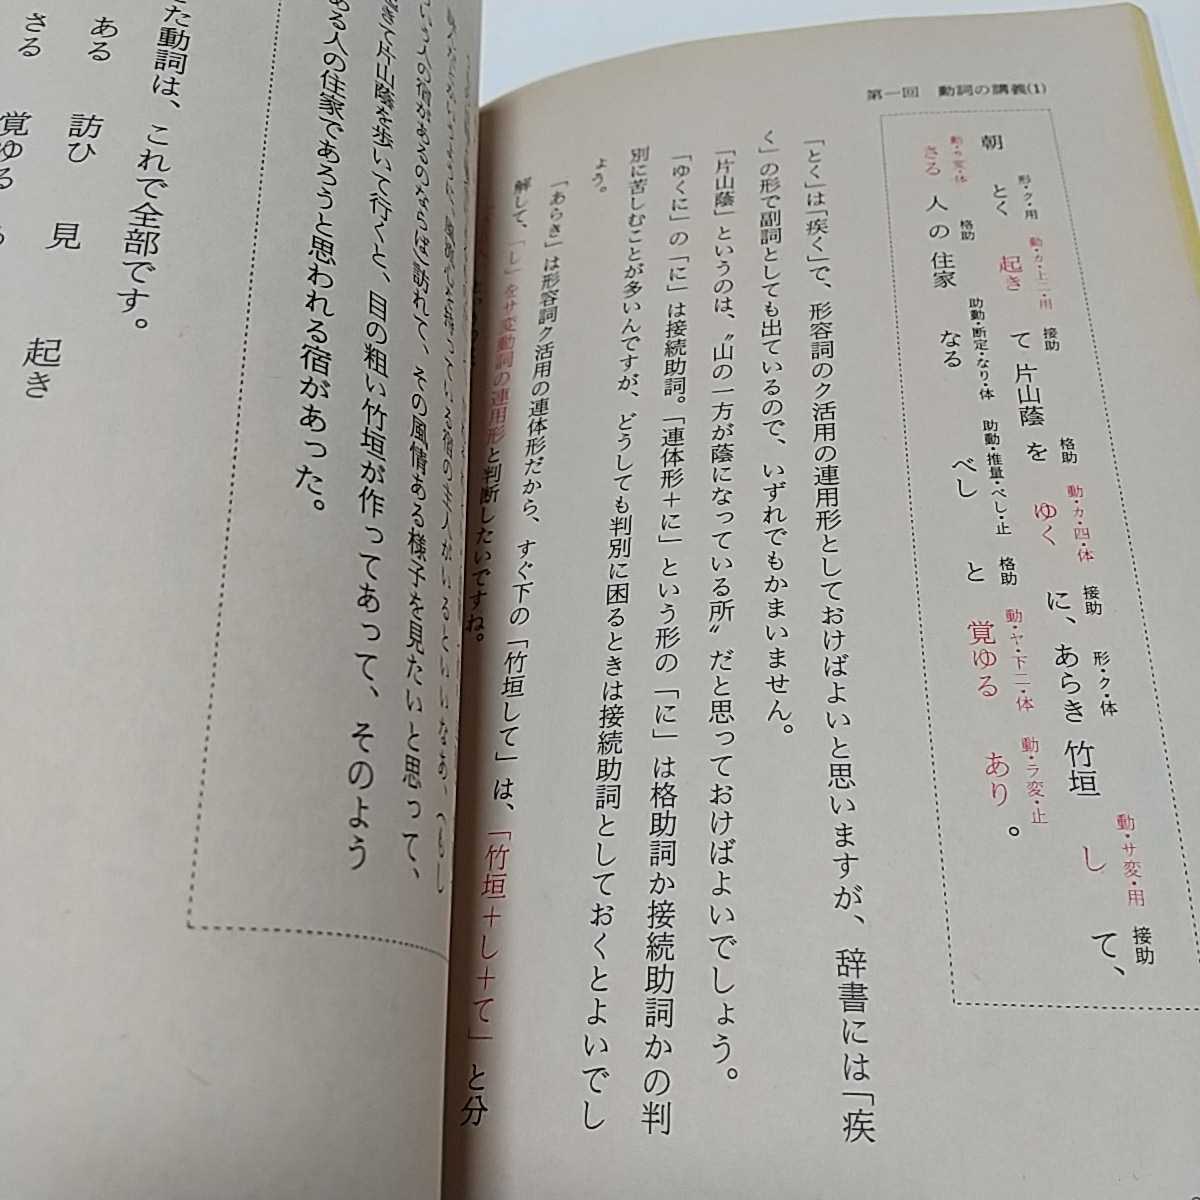 第一回 動詞の講義(1)
朝とく起きて片山蔭をゆくに、あらき竹垣して、
形・ク・用 動・カ・上二・用 接助 格助 動・カ・四・体 接助 形・ク・体 動・サ変・用 接助
さる人の住家なるべしと覚ゆるあり。
動・ラ変・体 格助 助動・断定・なり・体 助動・推量・べし・止 格助 動・ヤ・下二・体 動・ラ変・止
「とく」は「疾く」で、形容詞のク活用の連用形としておけばよいと思いますが、辞書には「疾
く」の形で副詞としても出ているので、いずれでもかまいません。
「片山蔭」というのは、〝山の一方が蔭になっている所〟だと思っておけばよいでしょう。
「ゆくに」の「に」は接続助詞。「連体形＋に」という形の「に」は格助詞か接続助詞かの判
別に苦しむことが多いんですが、どうしても判別に困るときは接続助詞としておくとよいでし
ょう。
「あらき」は形容詞ク活用の連体形だから、すぐ下の「竹垣して」は、「竹垣＋し＋て」と分
解して、「し」をサ変動詞の連用形と判断したいですね。
いう人の宿があるのならば）訪れて、その風情ある様子を見たいと思って、
起きて片山蔭を歩いて行くと、目の粗い竹垣が作ってあって、そのよう
ある人の住家であろうと思われる宿があった。
た動詞は、これで全部です。
ある 訪ひ 見 起き
さる 覚ゆる